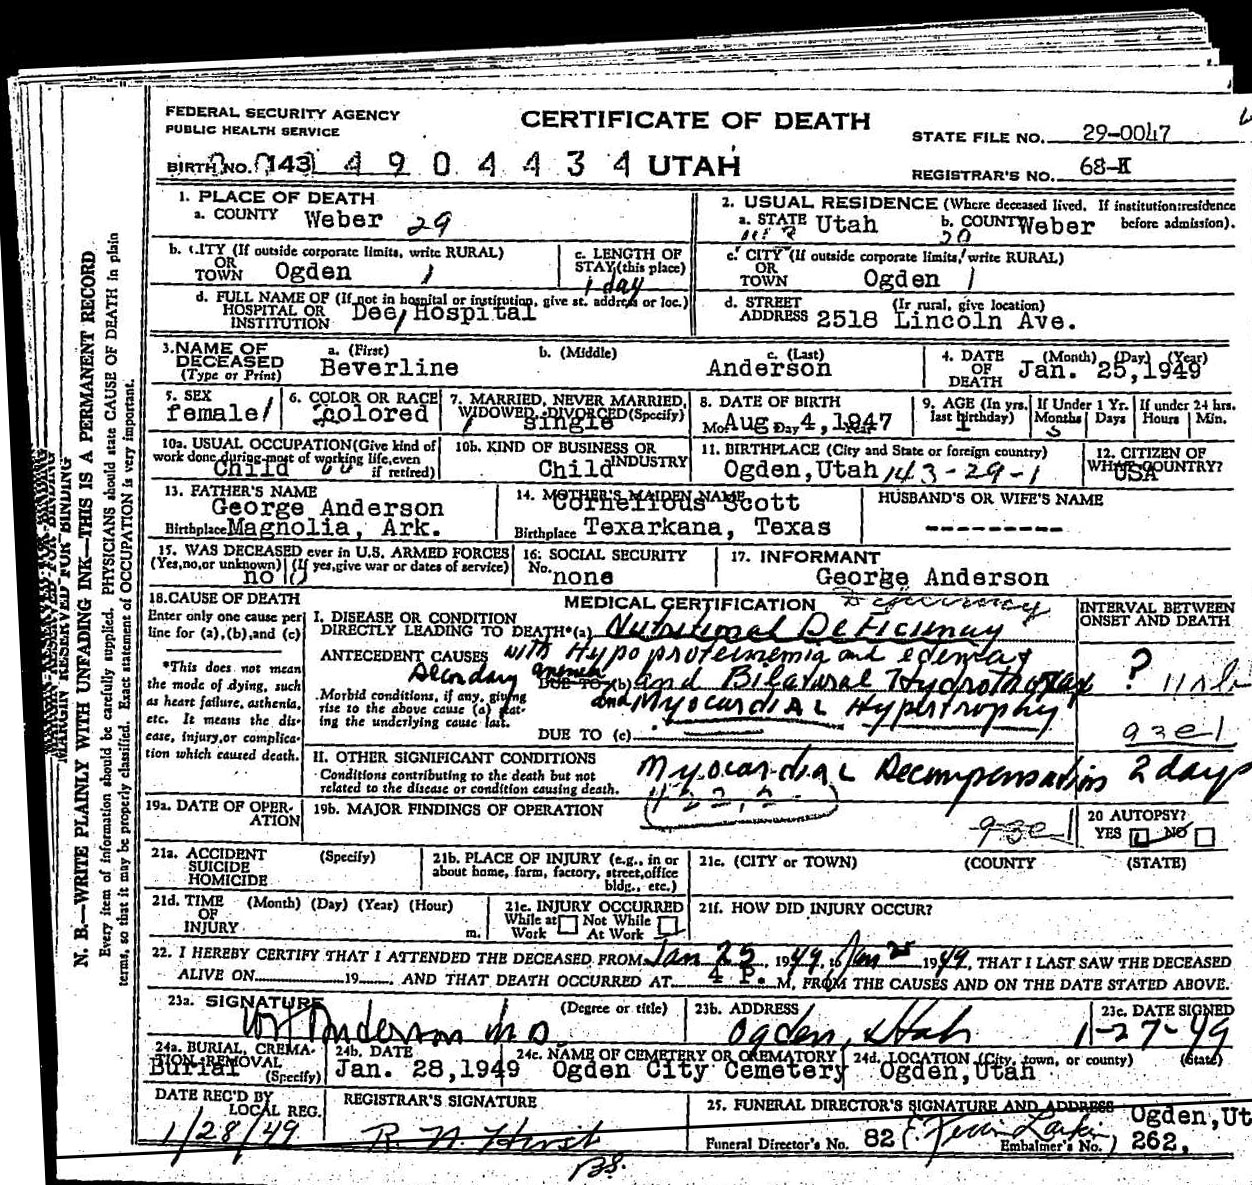 FEDERAL SECURITY AGENCY
PUBLIC HEALTH SERVICE
CERTIFICATE OF DEATH
STATE FILE NO. 29-0047
BIRTH NO. 143 4904434 UTAH
REGISTRAR'S NO. 68-
1. PLACE OF DEATH
a. COUNTY Weber 29
2. USUAL RESIDENCE (Where deceased lived. If institution: residence before admission).
a. STATE Utah b. COUNTY Weber
b. CITY (If outside corporate limits, write RURAL) OR TOWN Ogden 1
c. LENGTH OF STAY (this place) 1 day
c. CITY (If outside corporate limits, write RURAL) OR TOWN Ogden 1
d. FULL NAME OF (If not in hospital or institution, give st. address or loc.) HOSPITAL OR INSTITUTION Dee Hospital
d. STREET ADDRESS (If rural, give location) 2518 Lincoln Ave.
3. NAME OF DECEASED (Type or Print)
a. (First) Beverline
b. (Middle)
c. (Last) Anderson
4. DATE OF DEATH (Month) (Day) (Year) Jan. 25,1949
5. SEX female
6. COLOR OR RACE colored
7. MARRIED, NEVER MARRIED, WIDOWED, DIVORCED (Specify) single
8. DATE OF BIRTH Mo. Aug. Day 4,1947 Year
9. AGE (In yrs. last birthday) 1 If Under 1 Yr. Months 5 Days If under 24 hrs. Hours Min.
10a. USUAL OCCUPATION (Give kind of work done during most of working life, even if retired) Child
10b. KIND OF BUSINESS OR INDUSTRY Child
11. BIRTHPLACE (City and State or foreign country) Ogden,Utah 143-29-1
12. CITIZEN OF WHAT COUNTRY? USA
13. FATHER'S NAME George Anderson
Birthplace Magnolia, Ark.
14. MOTHER'S MAIDEN NAME Cornelious Scott
Birthplace Texarkana, Texas
HUSBAND'S OR WIFE'S NAME
---------
15. WAS DECEASED ever in U.S. ARMED FORCES (Yes, no, or unknown) (If yes, give war or dates of service) no
16. SOCIAL SECURITY No. none
17. INFORMANT George Anderson
18. CAUSE OF DEATH
Enter only one cause per line for (a), (b), and (c)
*This does not mean the mode of dying, such as heart failure, asthenia, etc. It means the disease, injury, or complication which caused death.
MEDICAL CERTIFICATION
Deficiency
INTERVAL BETWEEN ONSET AND DEATH
I. DISEASE OR CONDITION DIRECTLY LEADING TO DEATH* (a) Nutritional Deficiency
ANTECEDENT CAUSES with Hypoproteinemia and edema
Secondary anemia DUE TO (b) and Bilateral Hydrothorax ?
Morbid conditions, if any, giving rise to the above cause (a) stating the underlying cause last.
and Myocardial Hypertrophy
DUE TO (c)
II. OTHER SIGNIFICANT CONDITIONS
Conditions contributing to the death but not related to the disease or condition causing death.
Myocardial Decompensation 2 days
19a. DATE OF OPERATION
19b. MAJOR FINDINGS OF OPERATION
20 AUTOPSY? YES NO
21a. ACCIDENT SUICIDE HOMICIDE (Specify)
21b. PLACE OF INJURY (e.g., in or about home, farm, factory, street, office bldg., etc.)
21c. (CITY or TOWN) (COUNTY) (STATE)
21d. TIME OF INJURY (Month) (Day) (Year) (Hour) m.
21e. INJURY OCCURRED While at Work Not While At Work
21f. HOW DID INJURY OCCUR?
22. I HEREBY CERTIFY THAT I ATTENDED THE DECEASED FROM Jan 25, 1949, to Jan 25 1949, THAT I LAST SAW THE DECEASED
ALIVE ON 19 AND THAT DEATH OCCURRED AT 4 P. M, FROM THE CAUSES AND ON THE DATE STATED ABOVE.
23a. SIGNATURE (Degree or title) Anderson M D
23b. ADDRESS Ogden, Utah
23c. DATE SIGNED 1-27-49
24a. BURIAL, CREMATION, REMOVAL (Specify) Burial
24b. DATE Jan. 28,1949
24c. NAME OF CEMETERY OR CREMATORY Ogden City Cemetery
24d. LOCATION (City, town, or county) (State) Ogden,Utah
DATE REC'D BY LOCAL REG. 1/28/49
REGISTRAR'S SIGNATURE
25. FUNERAL DIRECTOR'S SIGNATURE AND ADDRESS Ogden,Ut
Funeral Director's No. 82 Embalmer's No. 262,
N. B.—WRITE PLAINLY WITH UNFADING INK—THIS IS A PERMANENT RECORD
Every item of information should be carefully supplied. PHYSICIANS should state CAUSE OF DEATH in plain
terms, so that it may be properly classified. Exact statement of OCCUPATION is very important.
MARGIN RESERVED FOR BINDING